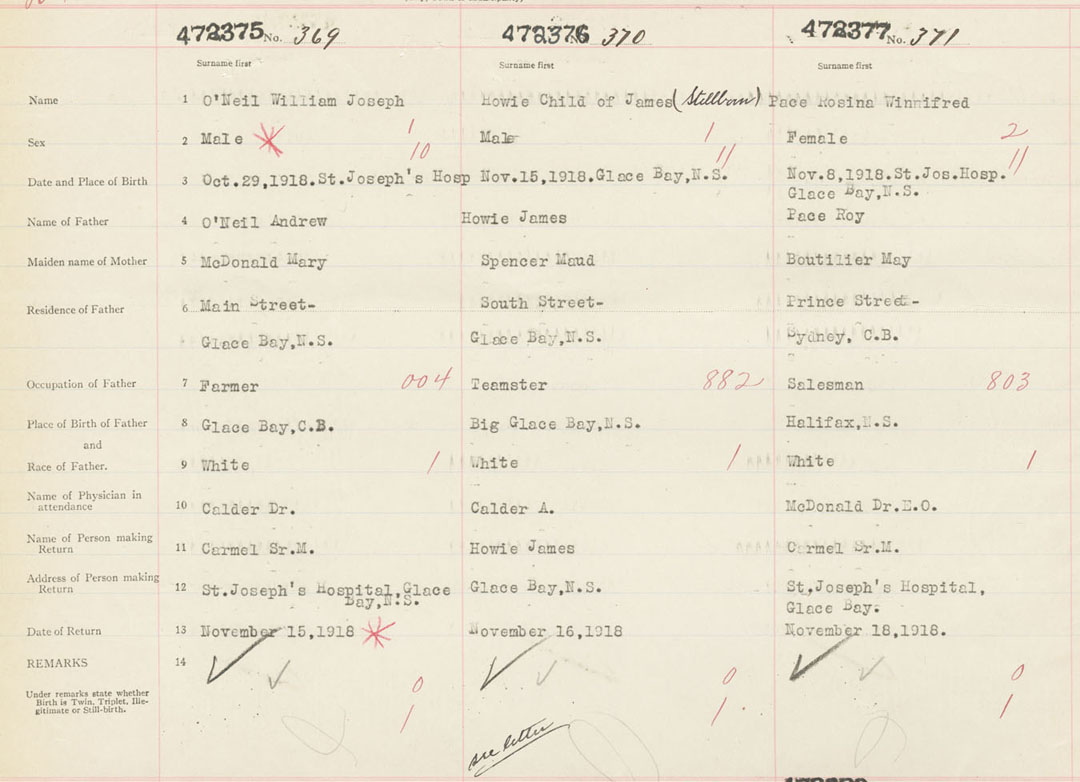 472375 No. 369
472376 No. 370
472377 No. 371
Surname first
Surname first
Surname first
Name 1 O'Neil William Joseph
Howie Child of James (Stillborn)
Pace Rosina Winnifred
Sex 2 Male 1
Male 1
Female 2
10
11
11
Date and Place of Birth 3 Oct.29,1918.St.Joseph's Hosp
Nov.15,1918.Glace Bay,N.S.
Nov.8,1918.St.Jos.Hosp.
Glace Bay,N.S.
Name of Father 4 O'Neil Andrew
Howie James
Pace Roy
Maiden name of Mother 5 McDonald Mary
Spencer Maud
Boutilier May
Residence of Father 6 Main Street-
South Street-
Prince Street-
Glace Bay,N.S.
Glace Bay,N.S.
Sydney, C.B.
Occupation of Father 7 Farmer 004
Teamster 882
Salesman 803
Place of Birth of Father 8 Glace Bay,C.B.
Big Glace Bay,N.S.
Halifax,N.S.
and
Race of Father. 9 White 1
White 1
White 1
Name of Physician in
attendance 10 Calder Dr.
Calder A.
McDonald Dr.E.O.
Name of Person making
Return 11 Carmel Sr.M.
Howie James
Carmel Sr.M.
Address of Person making
Return 12 St.Joseph's Hospital,Glace
Bay,N.S.
Glace Bay,N.S.
St.Joseph's Hospital,
Glace Bay.
Date of Return 13 November 15,1918
November 16,1918
November 18,1918.
REMARKS 14
Under remarks state whether
Birth is Twin, Triplet, Ille-
gitimate or Still-birth.
0
0
0
1
1
1
see letter